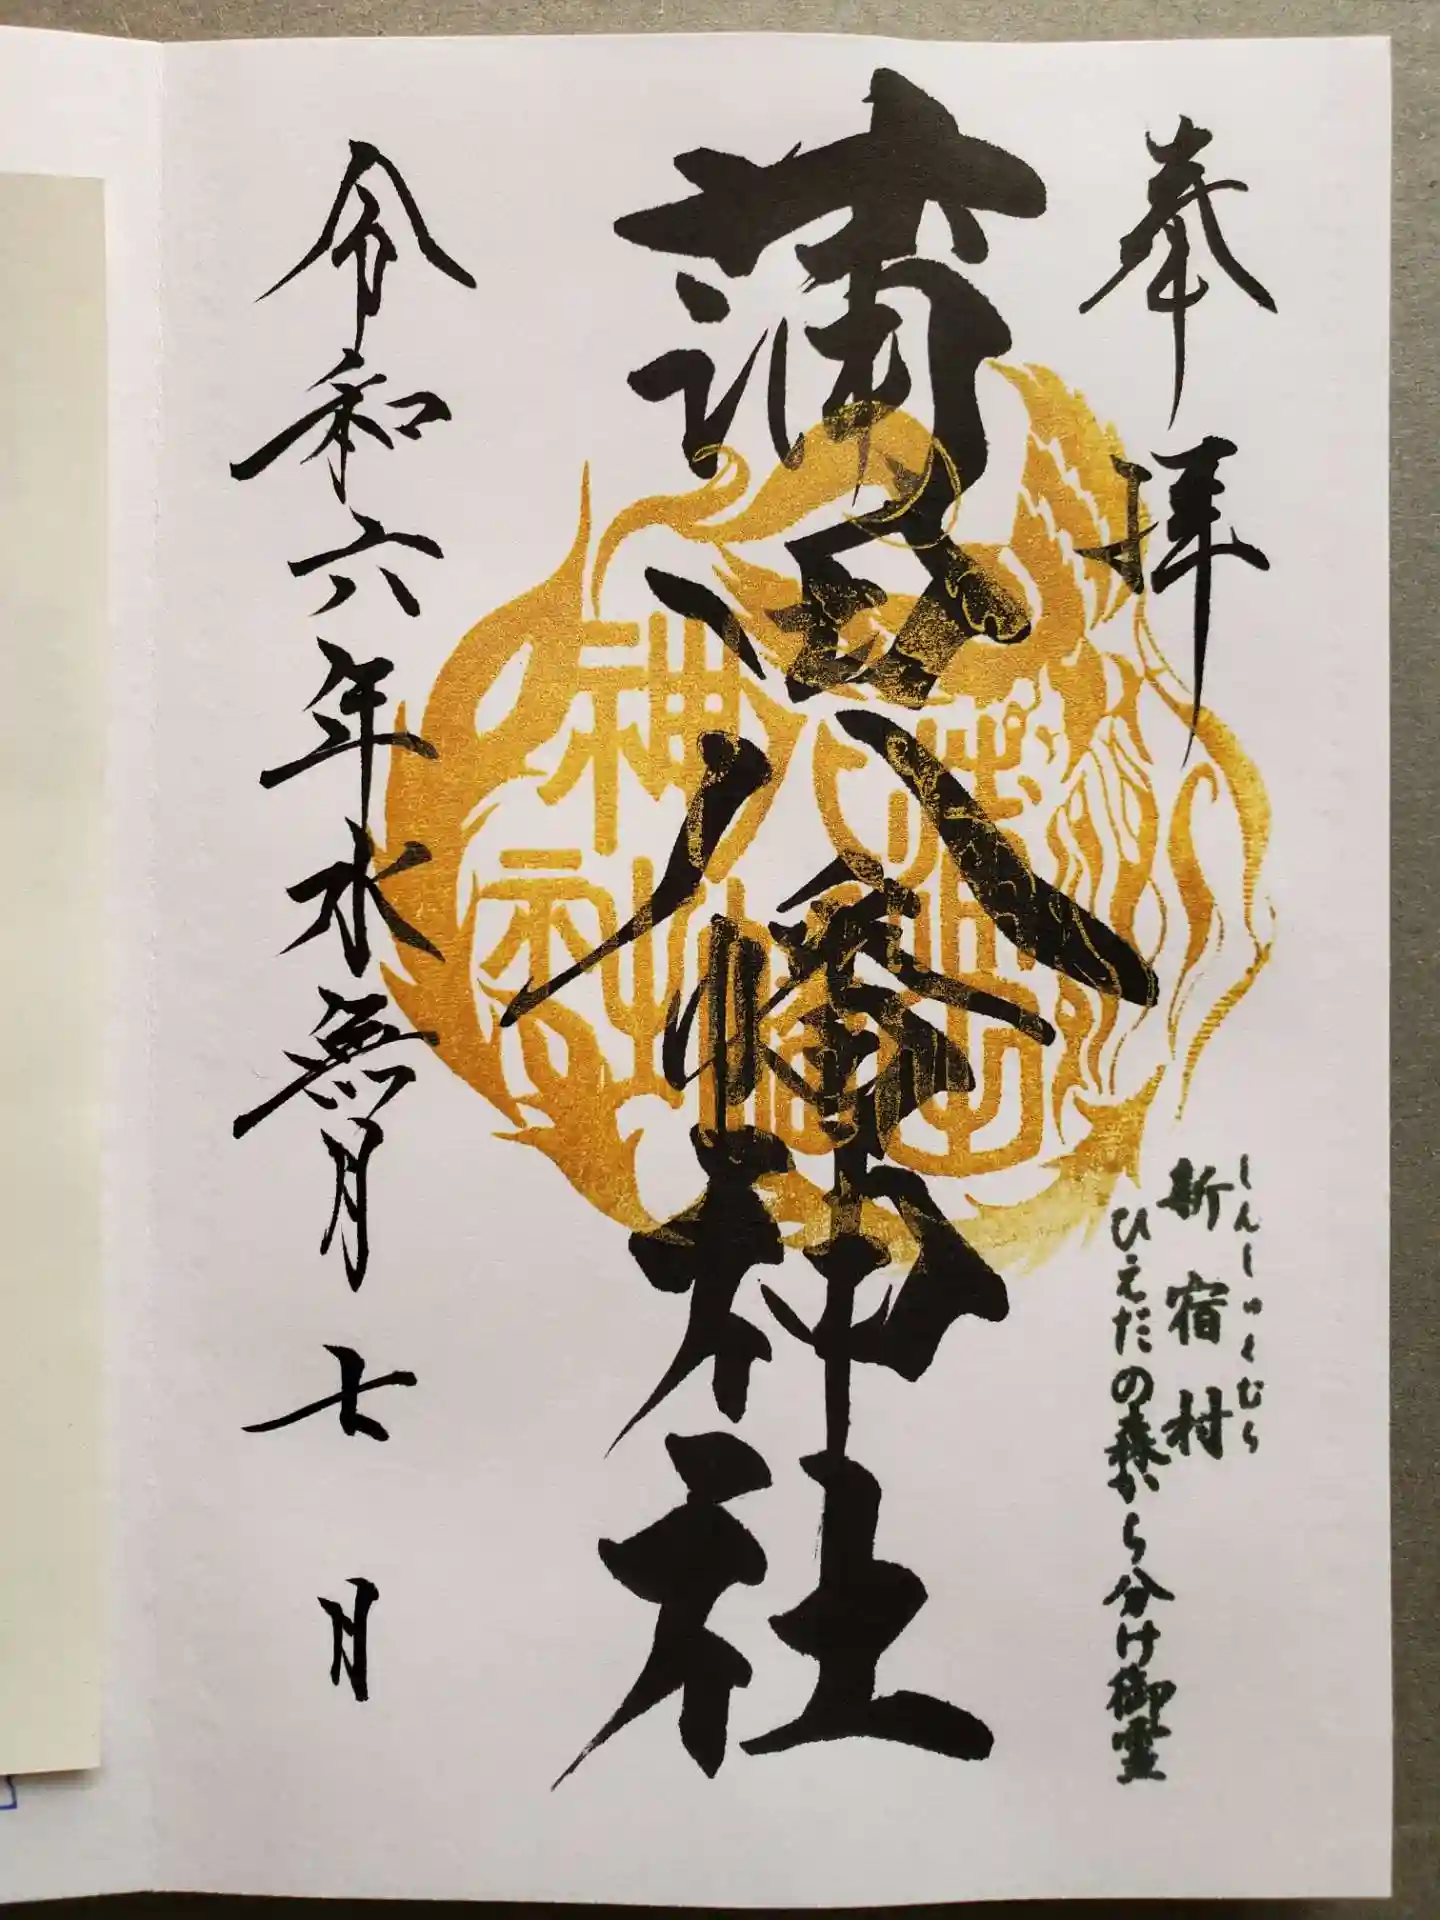 奉拝
しんしゅくむら
新宿村
ひえだの森から分け御霊
蒲田八幡神社
蒲田八幡神社
令和六年水無月七月